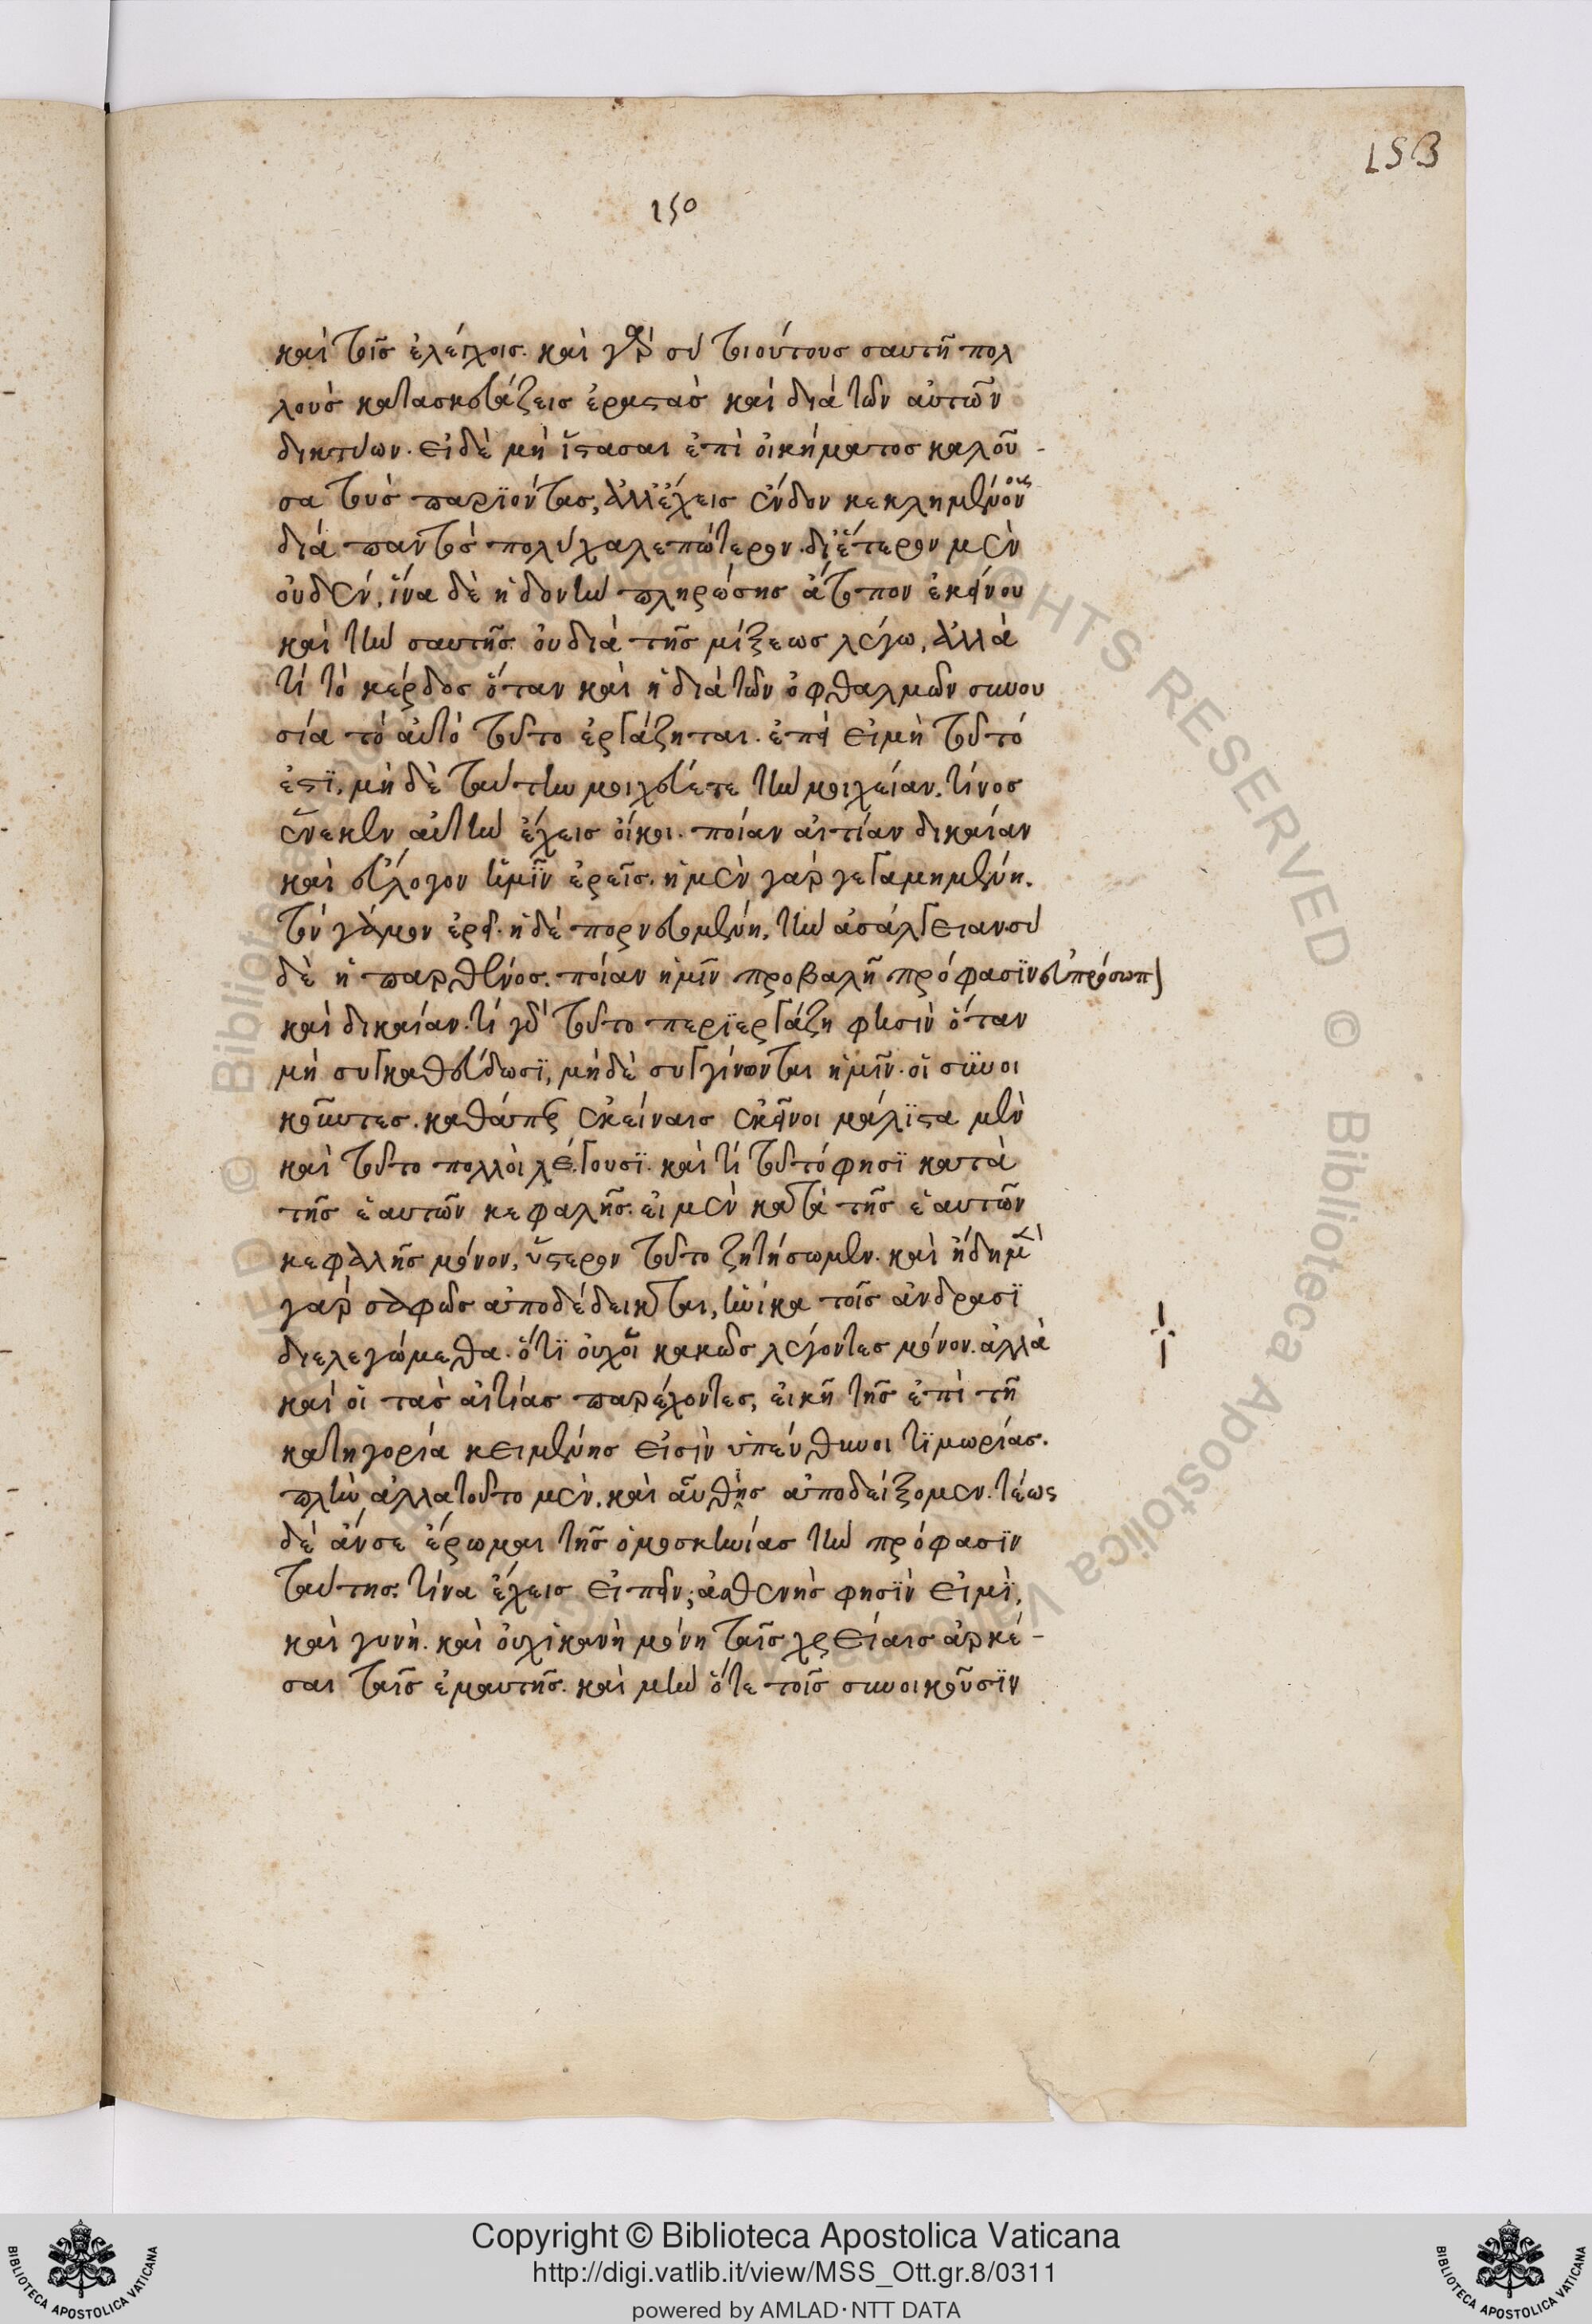 153
150
καὶ τοῖς ἐλέγχοις. καὶ γὰρ σὺ τοιούτους σαυτῆ πολ
λοὺς κατασκευάζεις ἐραστὰς καὶ διὰ τῶν αὐτῶν
δικτύων. εἰ δὲ μὴ ἵστασαι ἐπὶ οἰκήματος καλοῦ-
σα τοὺς παριόντας, ἀλλ' ἔχεις ἔνδον κεκλημένους
διὰ παντὸς πολὺ χαλεπώτερον. δι' ἕτερον μὲν
οὐδέν, ἵνα δὲ ἡδονὴν πληρώσης ἄτοπον ἐκείνου
καὶ τὴν σαυτῆς. οὐ διὰ τῆς μίξεως λέγω, ἀλλὰ
τί τὸ κέρδος ὅταν καὶ ἡ διὰ τῶν ὀφθαλμῶν συνου
σία τὸ αὐτὸ τοῦτο ἐργάζηται. ἐπεὶ εἰ μὴ τοῦτό
ἐστϊ, μὴ δὲ ταύτην μοιχεύετε τὴν μοιχείαν. τίνος
ἕνεκεν αὐτὴν ἔχεις οἴκοι. ποίαν αἰτίαν δικαίαν
καὶ εὔλογον ἡμῖν ἐρεῖς. ἡ μὲν γὰρ γεγαμημένη.
τὸν γάμον ἐρεῖ. ἡ δὲ πορνευομένη, τὴν ἀσέλγειαν. σὺ
δὲ ἡ παρθένος. ποίαν ἡμῖν προβαλῆ πρόφασϊν εὐπρόσωπ
καὶ δικαίαν. τί γὰρ τοῦτο περϊεργάζη φησὶν ὅταν
μὴ συγκαθεύδωσϊ, μὴ δὲ συγγίνωνται ἡμῖν. οἱ συνοι
κοῦντες. καθάπερ ἐκείναις ἐκεῖνοι μάλϊστα μὲν
καὶ τοῦτο πολλοὶ λέγουσϊ. καὶ τί τοῦτό φησϊ κατὰ
τῆς ἑαυτῶν κεφαλῆς. εἰ μὲν κατὰ τῆς ἑαυτῶν
κεφαλῆς μόνον, ὕστερον τοῦτο ζητήσωμεν. καὶ ἤδη μὲν
γὰρ σαφῶς ἀποδέδεικται, ἡνίκα τοῖς ἀνδρασϊ
διελεγώμεθα. ὅτϊ οὐχ οἱ κακῶς λέγοντες μόνον. ἀλλὰ
καὶ οἱ τὰς αἰτίας παρέχοντες, εἰκῆ τῆς ἐπὶ τῆ
κατηγορία κειμένης εἰσὶν ὑπεύθυνοι τϊμωρίας.
πλὴν ἀλλα τοῦτο μὲν. καὶ αὖθις ἀποδείξομεν. τέως
δὲ ἄν σε ἔρωμαι τῆς ὁμοσκηνίας τὴν πρόφασϊν
ταύτης. τίνα ἔχεις εἰπεῖν; ἀσθενὴς φησϊν εἰμϊ,
καὶ γυνὴ. καὶ οὐχ ἱκανὴ μόνη ταῖς χρείαις ἀρκέ-
σαι ταῖς ἐμαυτῆς. καὶ μὴν ὅτε τοῖς συνοικοῦσϊν
Copyright © Biblioteca Apostolica Vaticana
http://digi.vatlib.it/view/MSS_Ott.gr.8/0311
powered by AMLAD·NTT DATA